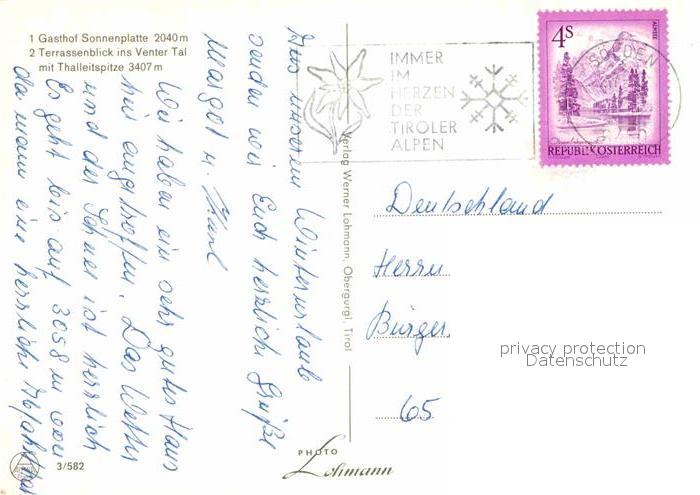 1 Gasthof Sonnenplatte 2040 m
2 Terrassenblick ins Venter Tal
mit Thalleitspitze 3407 m
Aus unserem Winterurlaub
senden wir Euch herzliche Grüße
Margot u. Karl
Wir haben ein sehr gutes Haus
hier angetroffen. Das Wetter
und der Schnee ist herrlich
Es geht bis auf 3058 m wo
da man eine herrliche Abfahrt
3/582
Verlag Werner Lohmann, Obergurgl, Tirol
PHOTO
Lohmann
IMMER
IM
HERZEN
DER
TIROLER
ALPEN
SÖLDEN
4 S
ALMSEE
REPUBLIK ÖSTERREICH
Deutschland
Herrn
Bürger,
65
privacy protection
Datenschutz